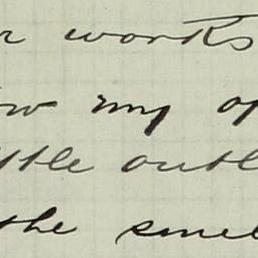 r works
ow my op
ttle outl
the smel